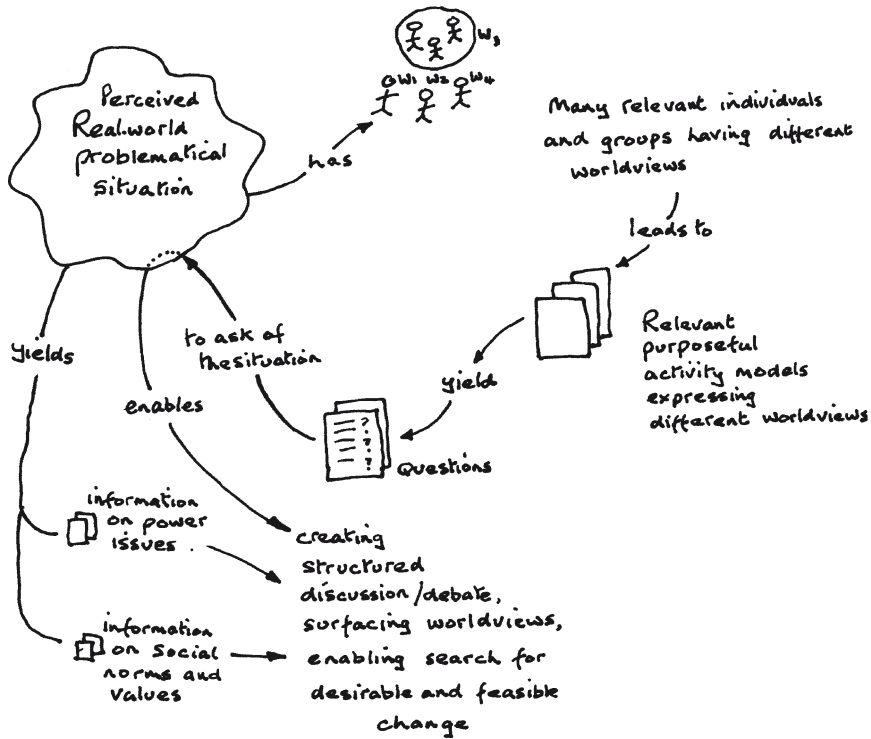 Perceived
Real-world
problematical
situation
has
W3
W1 W2 W4
Many relevant individuals
and groups having different
worldviews
leads to
Relevant
purposeful
activity models
expressing
different worldviews
yield
Questions
? ? ? ?
to ask of
the situation
yields
enables
information
on power
issues.
information
on social
norms and
values
creating
structured
discussion/debate,
surfacing worldviews,
enabling search for
desirable and feasible
change